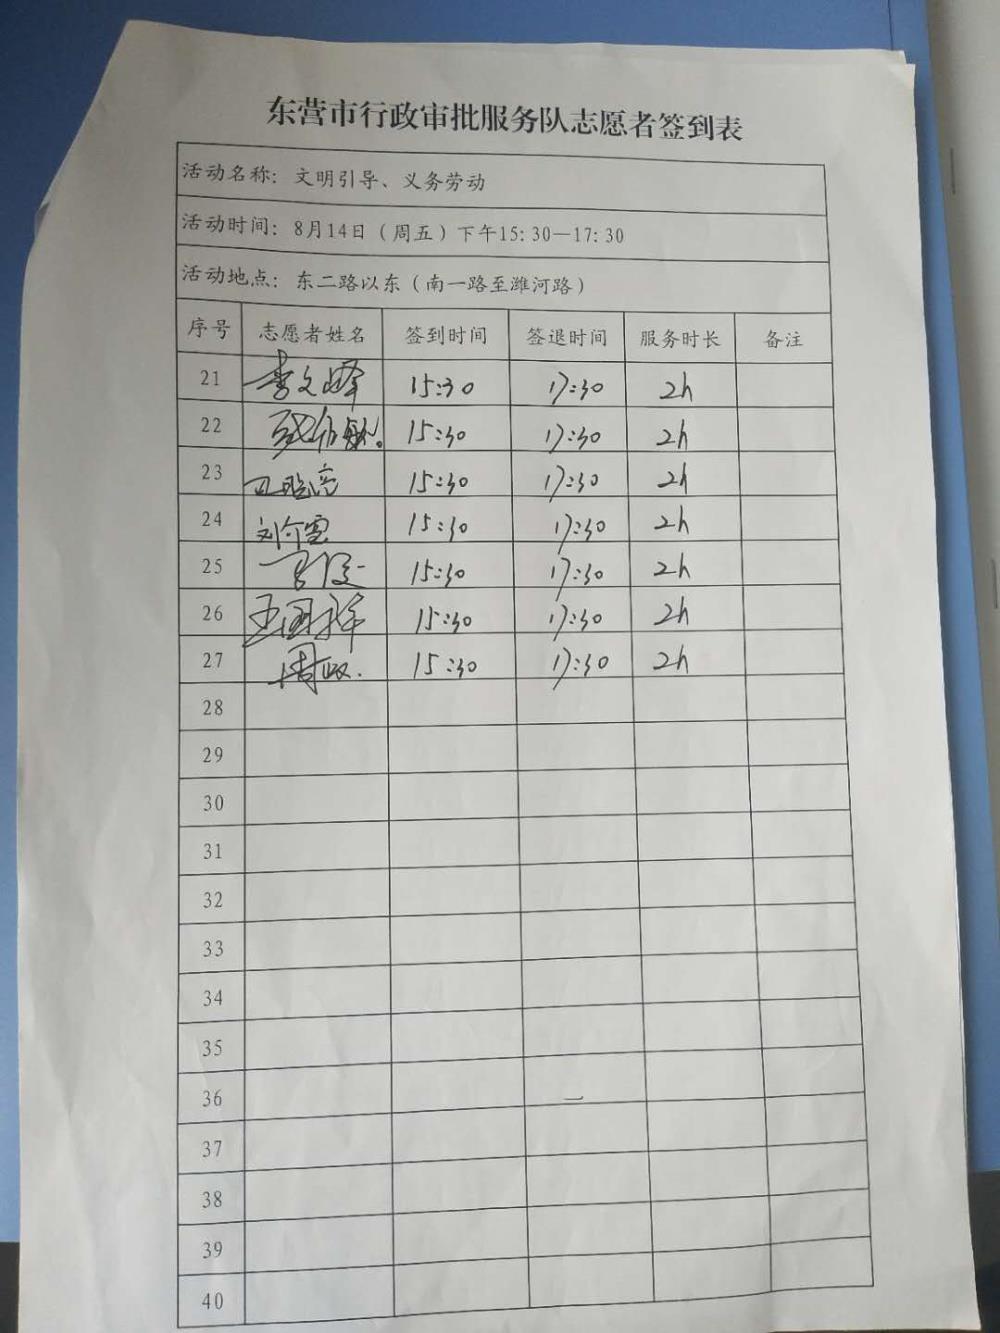 东营市行政审批服务队志愿者签到表
活动名称：文明引导、义务劳动
活动时间：8月14日（周五）下午15:30—17:30
活动地点：东二路以东（南一路至潍河路）
序号 志愿者姓名 签到时间 签退时间 服务时长 备注
21 李文峰 15:30 17:30 2h
22 15:30 17:30 2h
23 15:30 17:30 2h
24 15:30 17:30 2h
25 15:30 17:30 2h
26 王国祥 15:30 17:30 2h
27 15:30 17:30 2h
28
29
30
31
32
33
34
35
36
37
38
39
40